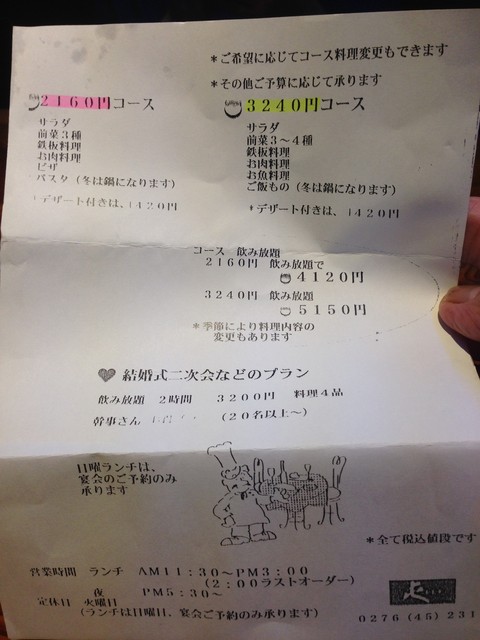 *ご希望に応じてコース料理変更もできます
*その他ご予算に応じて承ります
2160円コース
サラダ
前菜3種
鉄板料理
お肉料理
ピザ
パスタ(冬は鍋になります)
*デザート付きは、+420円
3240円コース
サラダ
前菜3~4種
鉄板料理
お肉料理
お魚料理
ご飯もの(冬は鍋になります)
*デザート付きは、+420円
コース 飲み放題
2160円 飲み放題で
4120円
3240円 飲み放題
5150円
*季節により料理内容の
変更もあります
結婚式二次会などのプラン
飲み放題 2時間 3200円 料理4品
幹事さん (20名以上~)
日曜ランチは、
宴会のご予約のみ
承ります
*全て税込値段です
営業時間 ランチ AM11:30~PM3:00
(2:00ラストオーダー)
夜 PM5:30~
定休日 火曜日
(ランチは日曜日、宴会ご予約のみ承ります)
0276(45)231